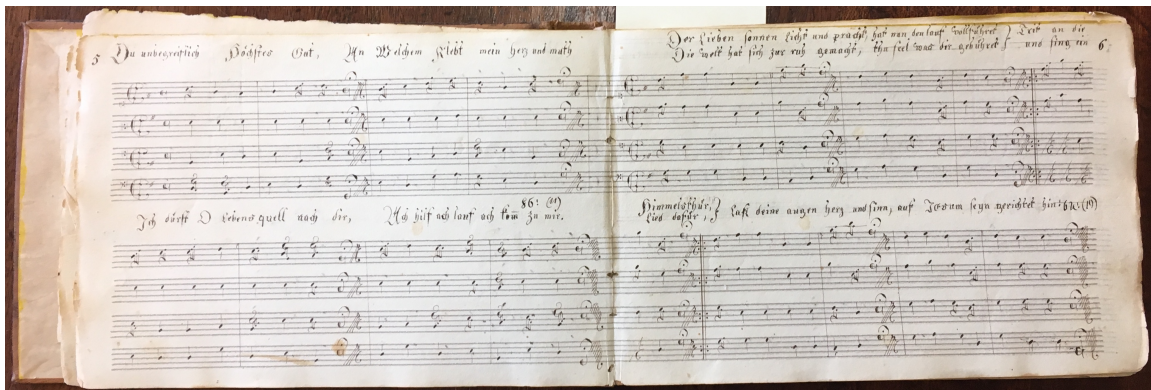 5 Du unbegreiflich Höchstes Gut, An Welchem Klebt mein Herz und muth
Ich dürst O Lebens quell nach dir, Ach hilf ach lauf ach kom zu mir.
86: (21)
Der lieben sonnen licht und pracht, hat nun den lauf vollführet } Trit an die 6
Die welt hat sich zur ruh gemacht, thu seel was dir gebühret } und sing ein
Himmelsthür, } laß deine augen herz und sinn, auf Jesum seyn gerichtet hin:
lied dafür,